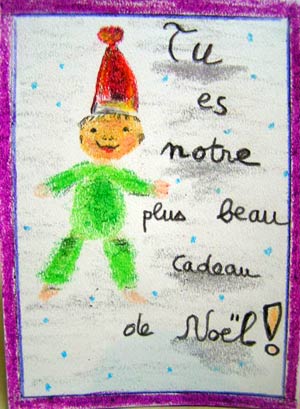 Tu
es
notre
plus beau
cadeau
de Noël!